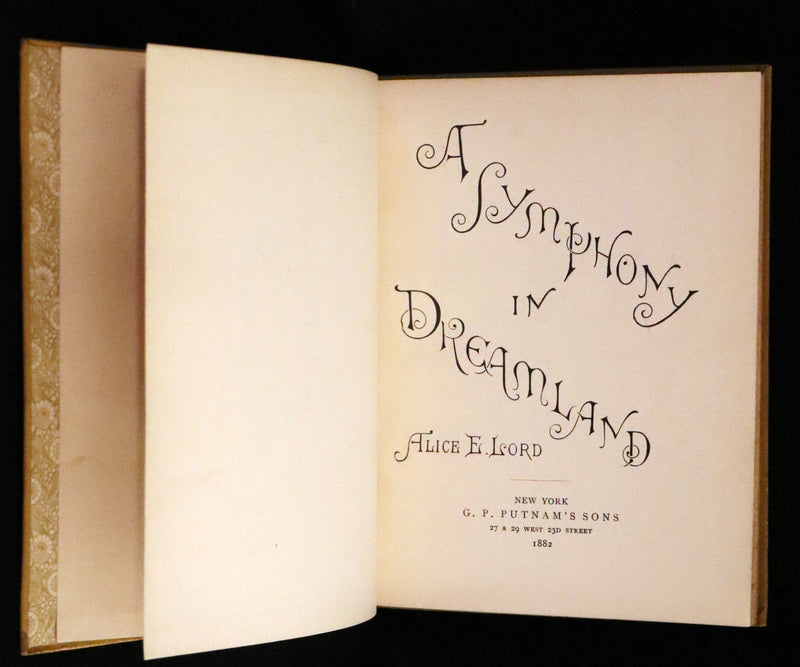 A
SYMPHONY
IN
DREAMLAND
ALICE E. LORD
NEW YORK
G. P. PUTNAM'S SONS
27 & 29 WEST 23D STREET
1882